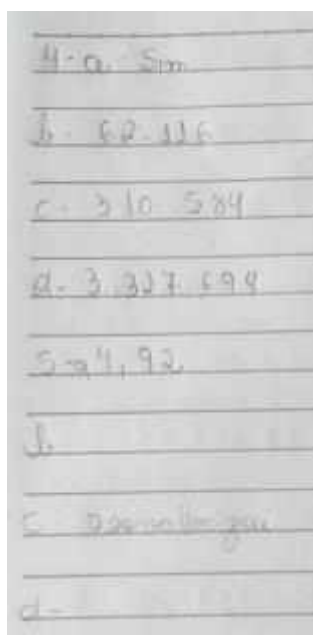 4-a. Sim
b- 62.116
c- 310.584
d- 3.327.694
5-a 4,92
b
c
d-